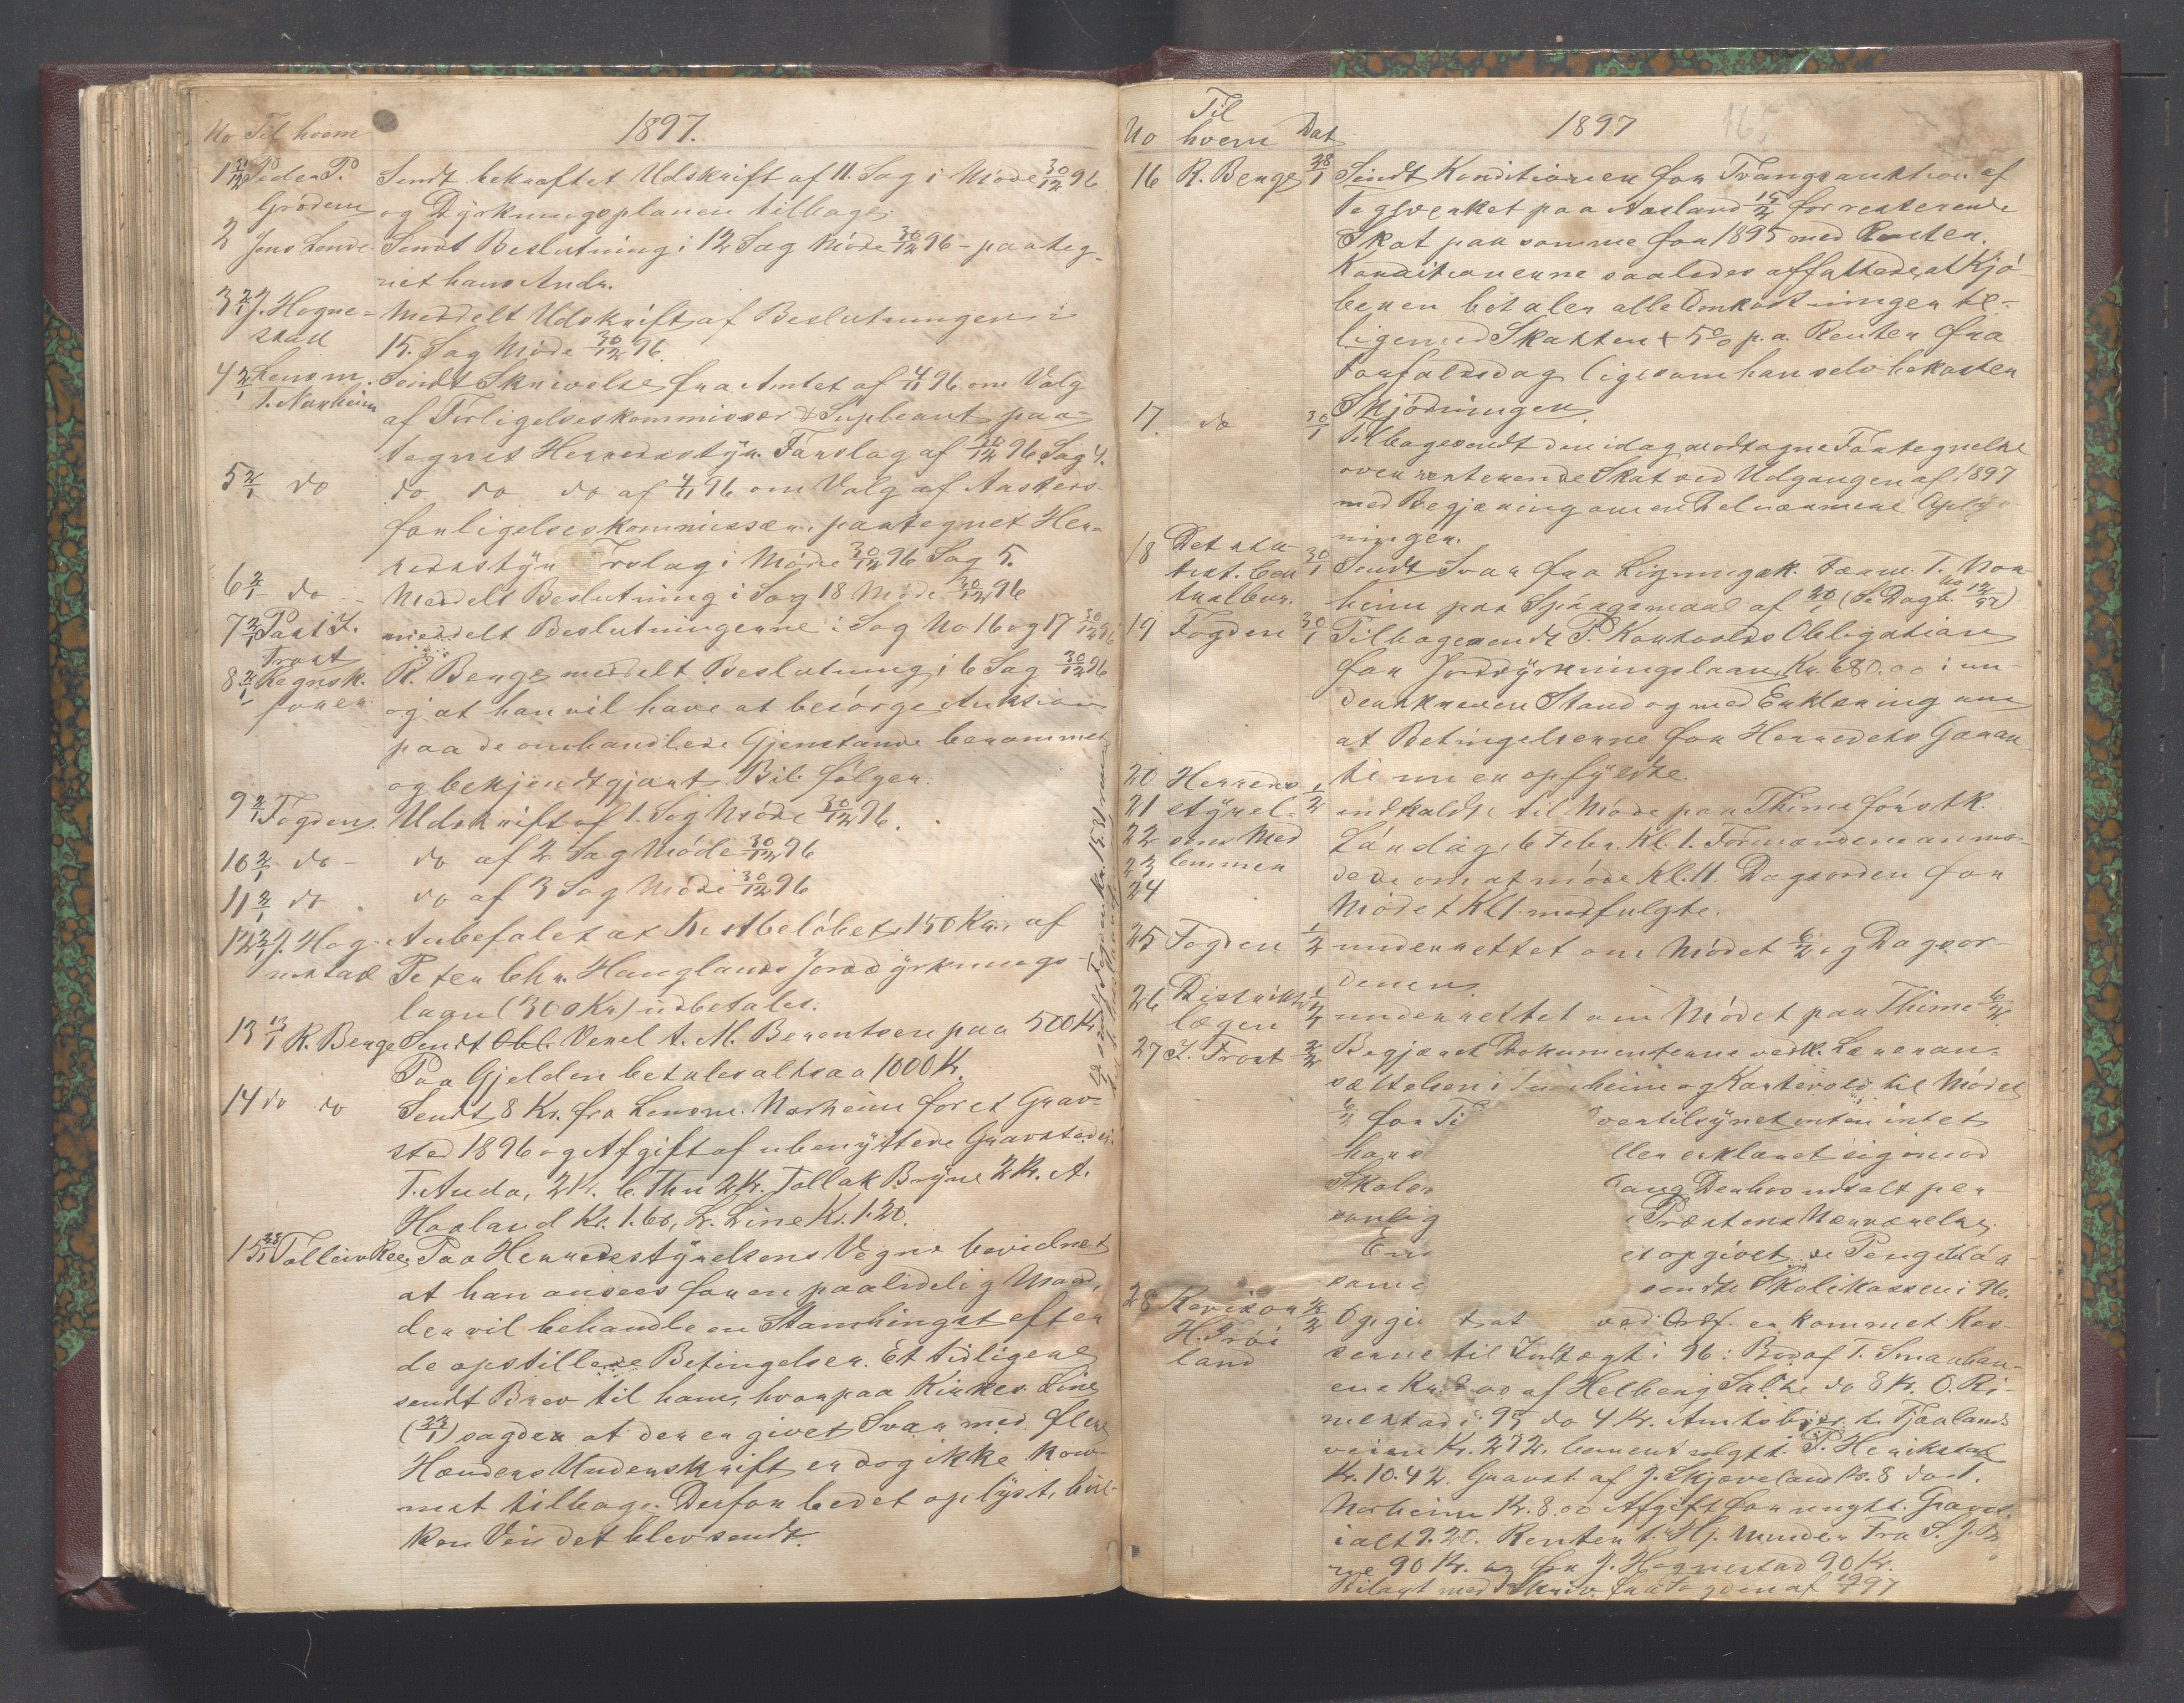 No Til hvem 1897.
1 31/12 Peder P. Sendt bekræftet Udskrift af 11. Sag i Møde 30/12 96
Grødem og Dyrkningsplanen tilbage.
2 Jens Lende Sendt Beslutning i 12 Sag Møde 30/12 96 - paateg-
net hans Andr.
3 2/1 J. Hogne- Meddelt Udskrift af Beslutningen i
stad 15. Sag Møde 30/12 96.
4 2/1 Lensm. Sendt Skrivelse fra Amtet af 4/11 96 om Valg
T. Norheim af Forligelseskommissær & Supleant paa-
tegnet Herredsstyr. Forslag af 30/12 96 Sag 4.
5 2/1 do do do do af 4/11 96 om Valg af
forligelseskommissær, paategnet Her-
redsstyr Forslag i Møde 30/12 96 Sag 5.
6 2/1 do - Meddelt Beslutning i Sag 18 Møde 30/12 96
7 2/1 Past. J. meddelt Beslutningerne i Sag No 16 og 17 30/12 96
Tront
8 2/1 Regnsk. R. Benge meddelt Beslutning i 6 Sag 30/12 96
fører og at han vil have at besørge Auktion
paa de omhandlede Gjenstande berammet
og bekjendtgjort. Bil. følger.
9 2/1 Fogden. Udskrift af 1. Sag Møde 30/12 96.
10 2/1 do - do af 2 Sag Møde 30/12 96
11 2/1 do do af 3 Sag Møde 30/12 96
12 2/1 J. Hog- Anbefalet at Restbeløbet, 150 Kr., af
nestad Peter Chr. Hauglands Jorddyrknings-
laan (300 Kr) udbetales.
13 13/1 R. Benge Sendt Obl. Vexel A. M. Berentsen paa 500 Kr
Paa Gjelden betales altsaa 1000 Kr.
14 do do Sendt 8 Kr. fra Lensm. Norheim for et Grav-
sted 1896 og Afgift af ubenyttede Gravsteder.
T. Auda, 2 Kr. C. Thu 2 Kr. Tollak Bryne 2 Kr. A.
Haaland Kr. 1.60, L. Line Kr. 1.20.
15 28/1 Tolleiv Ree Paa Herredsstyrelsens Vegne bevidnet
at han ansees for en paalidelig Mand,
der vil behandle en Stamhingst efter
de opstillede Betingelser. Et tidligere
sendt Brev til ham, hvorpaa Kirkes. Line
(23/1) sagde at der er givet Svar med flere
Hænders Underskrift er dog ikke kom-
met tilbage. Derfor bedet oplyst, hvil-
ken Vei det blev sendt.
Til
No hvem Dat 1897
16 R. Benge 28/1 Sendt Konditioner for Tvangsauktion af
Teglverket paa Aasland 15/2 for resterende
Skat paa samme for 1895 med Renter.
Konditionerne saaledes affattede, at Kjø-
beren betaler alle Omkostninger til-
ligemed Skatten + 5% p.a. Renter fra
Forfaldsdag ligesom han selv bekoster
Skjødningen.
17. do 30/1 Tilbagesendt den idag modtagne Fortegnelse
over resterende Skat ved Udgangen af 1897
med Begjæring om en Del nærmere Oplys-
ninger.
18 Det sta- 30/1 Sendt Svar fra Ligningsk. Form. T. Nor-
tist. Cen heim paa Spørgsmaal af 20/1 (Se Dagb. No 12/97)
tralbur.
19 Fogden 30/1 Tilbagesendt P. Kartvolds Obligation
for Jorddyrkningslaan, Kr. 680.00 i un-
derskreven Stand og med Erklæring om
at Betingelserne for Herredets Garan-
ti nu er opfyldte.
20 Herreds- 1/2 indkaldt til Møde paa Thime førstk.
21 styrel-
22 sens Med Lørdag, 6 Febr. Kl. 1. Formændene anmo-
23 lemmer dede om at møde Kl. 11. Dagsorden for
24 Mødet Kl 1. medfulgte.
25 Fogden 1/2 underrettet om Mødet 6/2 og Dagsor-
denen.
26 Distrikts 1/2 underrettet om Mødet paa Thime 6/2.
lægen
27 J. Tront 2/2 Begjæret Dokumenterne vedk. Læreran-
sættelsen i heim og Kartevold til Mødet
6/2 for Ti ventilsynet enten intet
hans ller erklæret sig imod
Skolen Den hos udtalt per-
sonlig Præstens Nærværelse.
En et opgivet de Penge
same sendte Skolekassen i 96.
28 Revisor 2/2 Opgi t at ved Ordf. er kommet Kas-
H. Trøi- serne til Indtægt i 96: Bod af T. Smaahau-
land ene Kr. 8.00 af Helberg Salte do 8 Kr. O. Ri-
mestad i 95 do 4 Kr. Amtsbidr. t. Fjaalands
veien Kr. 272, Cement solgt t. P. Herikstad
Kr. 10.42. Gravst. af J. Skjæveland Kr. 8 do T.
Norheim Kr. 8.00 Afgift for nngt. Gravst.
ialt 9.20. Renter t. Hj. Munde Fra S. J. By-
ne 90 Kr. og fra J. Hognestad 90 Kr.
Bilagt med Skriv. fra Fogden af 97